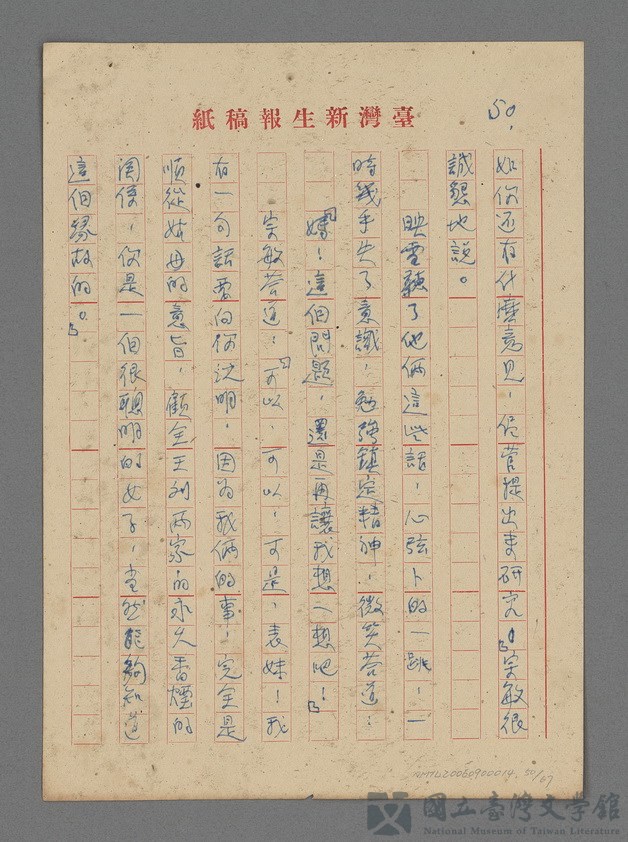 50,
臺灣新生報稿紙
如你还有什麼意見，侭管提出來研究。」宋敏很
誠懇地說。
映雪聽了他倆這些話，心弦卜的一跳，一
時幾乎失了意識，勉強鎮定精神，微笑荅道：
「媽！這個問題，還是再讓我想一想吧！」
宋敏荅道：「可以，可以，可是，表妹！我
有一句話要向你説明，因為我倆的事，完全是
順從姑母的意旨，顧全王刘兩家的永久香煙的
関係，你是一個很聰明的女子，當然能夠知道
這個緣故的。」
NMTL20050900014 50/67
國立臺灣文學館
National Museum of Taiwan Literature